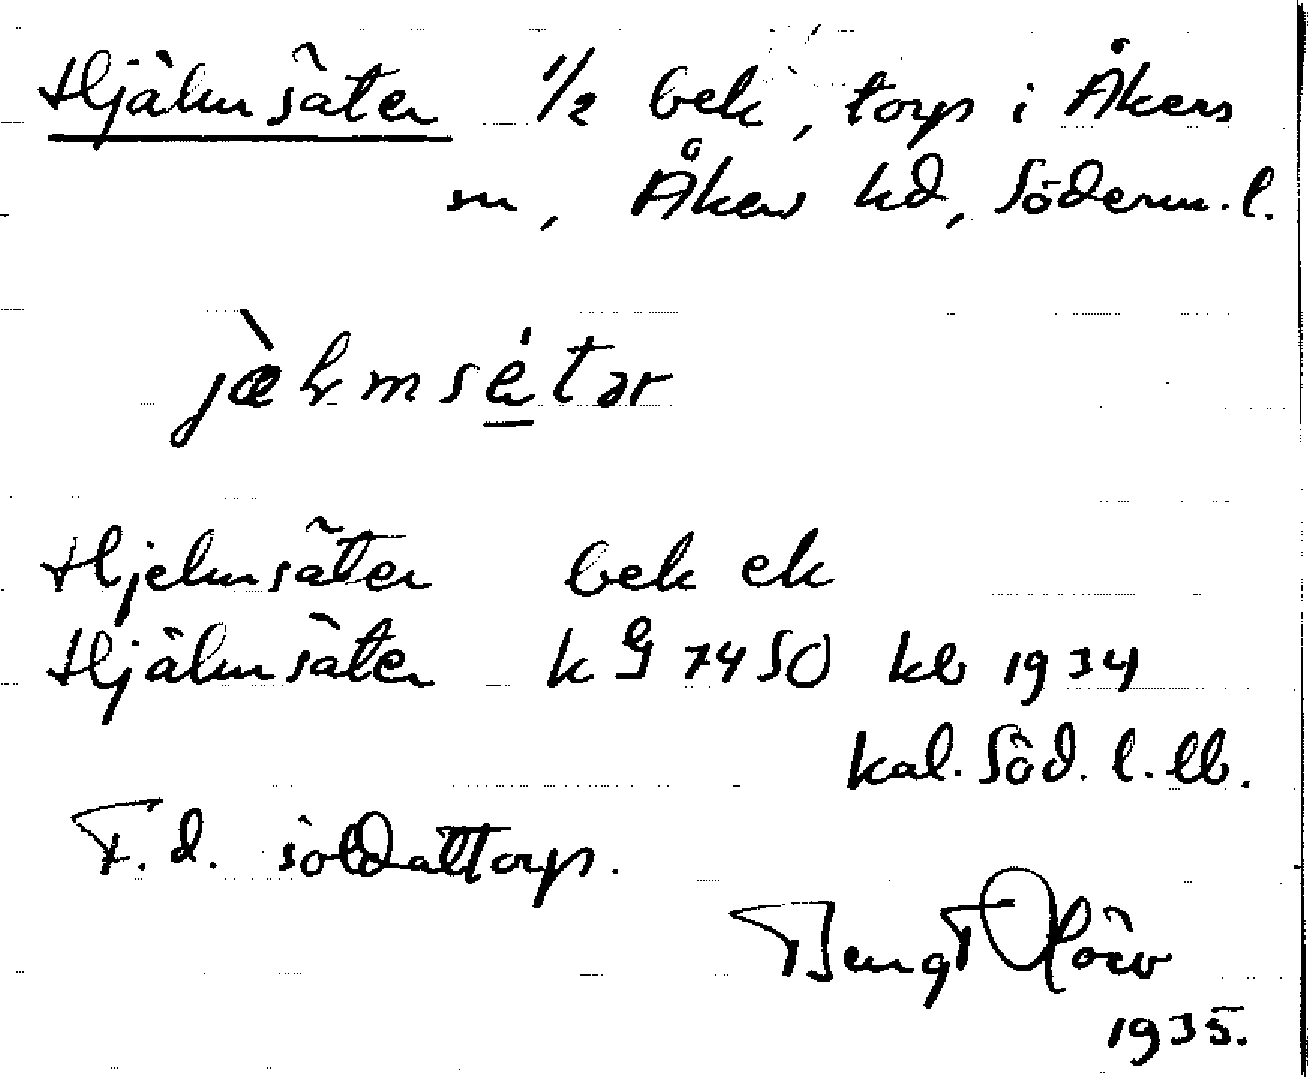 Hjälmsäter 1/2 bek, torp i Åkers
sn, Åkers hd, Söderm. l.
jæ̀lmsétər
Hjelmsäter bek ek
Hjälmsäter k 7450 kb 1934
kal. Söd. l. lb.
F. d. soldattorp.
Bengt
1935.